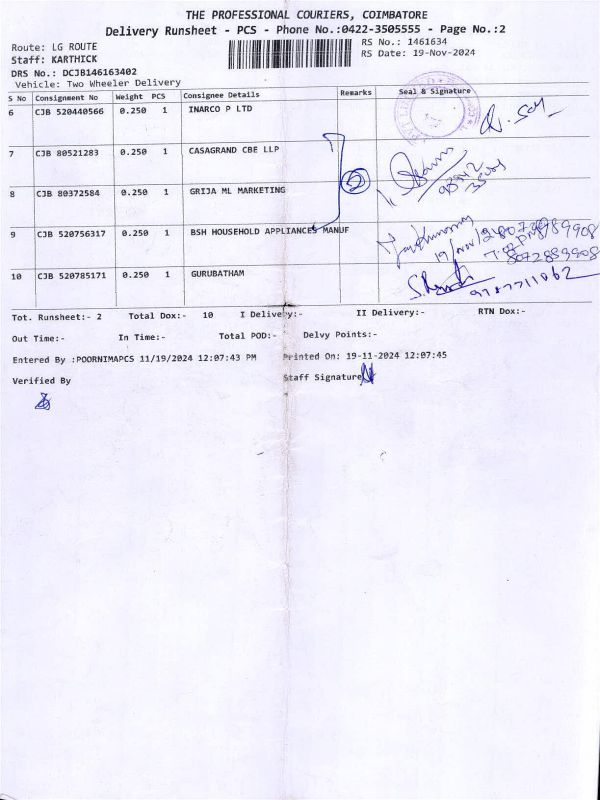 THE PROFESSIONAL COURIERS, COIMBATORE
Delivery Runsheet - PCS - Phone No.:0422-3505555 - Page No.:2
Route: LG ROUTE
RS No.: 1461634
Staff: KARTHICK
RS Date: 19-Nov-2024
DRS No.: DCJB146163402
Vehicle: Two Wheeler Delivery
S No Consignment No Weight PCS Consignee Details Remarks Seal & Signature
6 CJB 520440566 0.250 1 INARCO P LTD
7 CJB 80521283 0.250 1 CASAGRAND CBE LLP
8 CJB 80372584 0.250 1 GRIJA ML MARKETING
2
9 CJB 520756317 0.250 1 BSH HOUSEHOLD APPLIANCES MANUF
10 CJB 520785171 0.250 1 GURUBATHAM
9787711062
Tot. Runsheet:- 2 Total Dox:- 10 I Delivery:- II Delivery:- RTN Dox:-
Out Time:- In Time:- Total POD:- Delvy Points:-
Entered By :POORNIMAPCS 11/19/2024 12:07:43 PM Printed On: 19-11-2024 12:07:45
Verified By Staff Signature